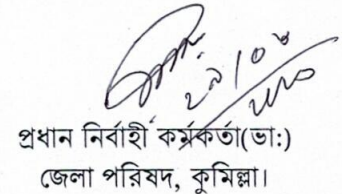 প্রধান নির্বাহী কর্মকর্তা(ভা:)
জেলা পরিষদ, কুমিল্লা।